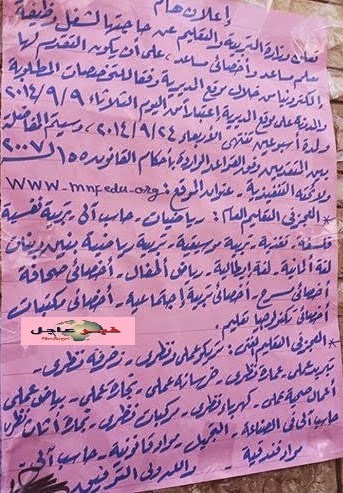 إعلان هام
تعلن وزارة التربية والتعليم عن حاجتها لشغل وظيفة
معلم مساعد وأخصائي مساعد، على أن يكون التقدم لها
إلكترونيا من خلال موقع المديرية وفقا للتخصصات المطلوبة
والمدونة على موقع المديرية اعتبارا من اليوم الثلاثاء ٢٠١٤/٩/٩
ولمدة أسبوعين تنتهى الأربعاء ٢٠١٤/٩/٢٤، وسيتم المفاضلة
بين المتقدمين وفق القواعد الواردة بأحكام القانون ١٥٥ لسنة ٢٠٠٧
ولائحته التنفيذية - عنوان الموقع: www-mnfedu.org
* العجز فى التعليم العام: رياضيات - حاسب آلى - تربية نفسية
فلسفة - تغذية - تربية موسيقية - تربية رياضية بنين وبنات
لغة ألمانية - لغة إيطالية - رياض أطفال - أخصائى صحافة
أخصائى مسرح - أخصائى تربية اجتماعية - أخصائى مكتبات
أخصائى تكنولوجيا تعليم.
خبر عاجل
* العجز فى التعليم الفنى: تريكو عملى ونظرى - زخرفة نظرى -
تبريد عملى - عمارة نظرى - خرسانة عملى - نجارة عملى - بياض عملى
أعمال صحية عملى - كهرباء نظرى - مركبات نظرى - نجارة أثاث نظرى
حاسب آلى فى الصناعة - التجميل - مواد قانونية - حاسب آلى -
مواد فندقية
والله ولى التوفيق